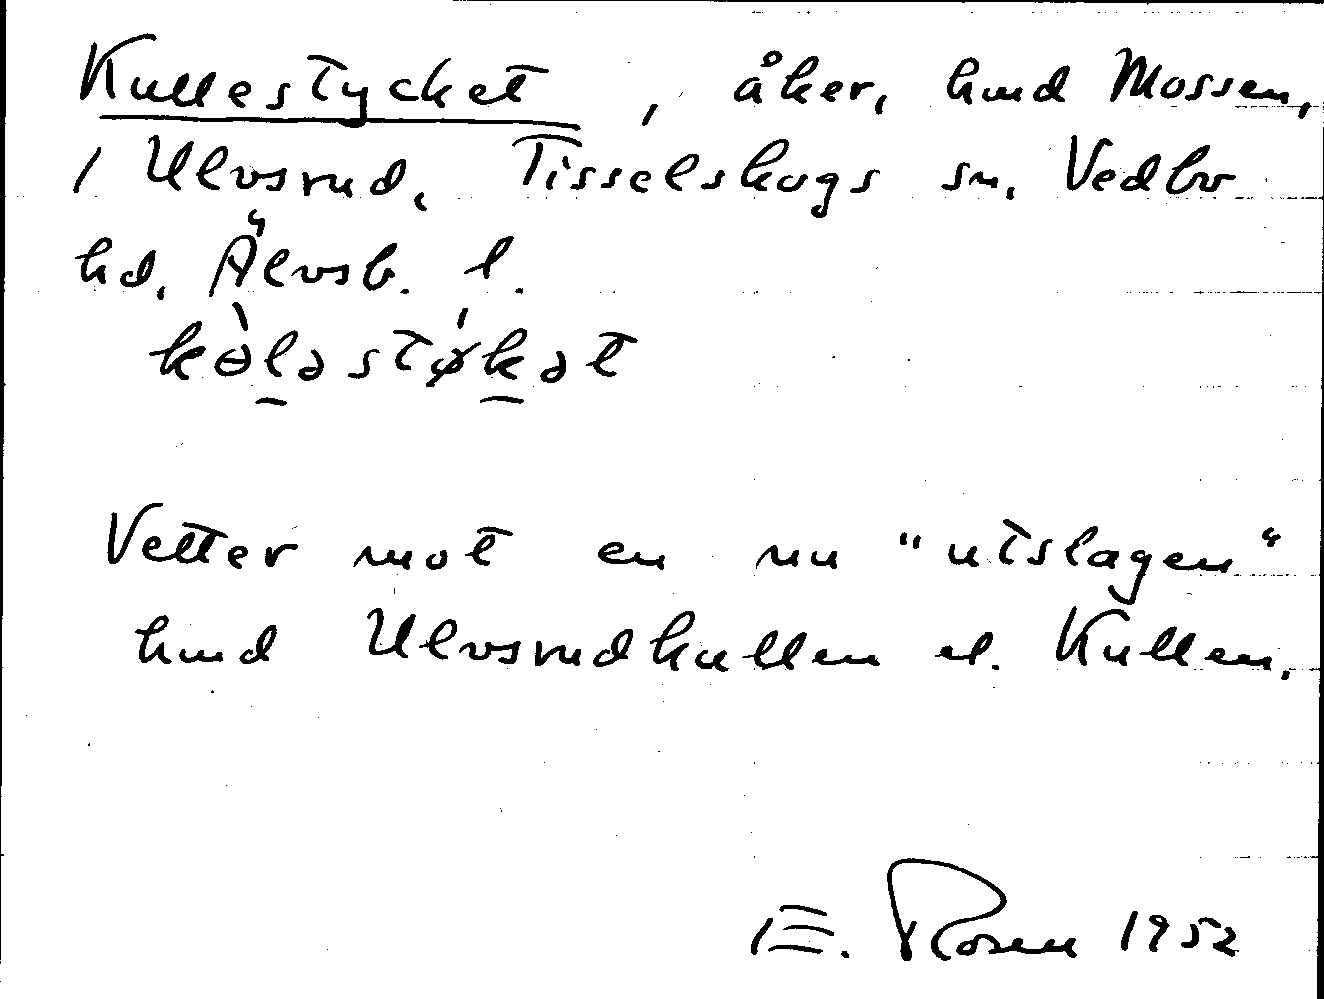 Kullestycket, åker, hmd Mossen,
i Ulvsrud, Tisselskogs sn, Vedbo
hd, Älvsb. l.
kɵ̀l̠əstǿk̠ət
Vetter mot en nu "utslagen"
hmd Ulvsrudkullen el. Kullen.
E. Rosell 1952